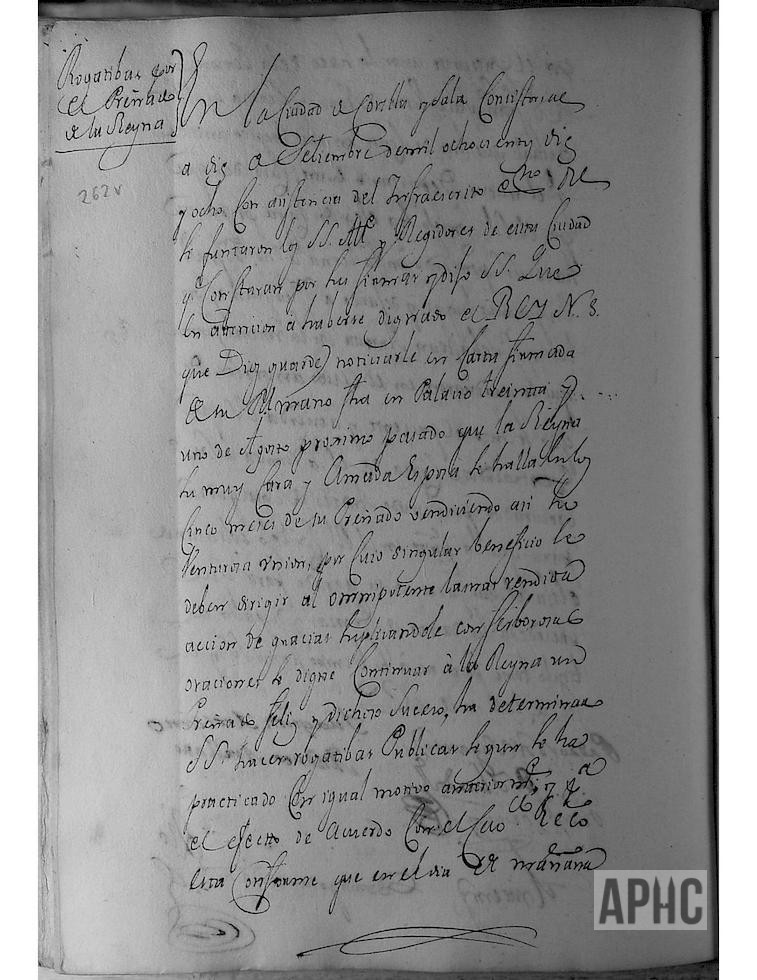 Rogatibas por
el Preñado
de la Reyna
262 v
En la Ciudad de Corella y Sala Consistorial
a diez de Setiembre de mil ochocientos diez
y ocho Con asistencia del Infraescrito
se juntaron los SS. Alc.e y Regidores de esta Ciudad
q.e Constaran por sus firmas y dijo SS. Que
en attencion a haberse dignado el REY N. S.
que Dios guarde) noticiarle en Carta firmada
de su Rl mano fha en Palacio treinta y
uno de Agosto proximo pasado que la Reyna
su muy Cara y Amada Esposa se halla en los
Cinco meses de su Preñado vendiciendo asi su
Venturosa union, por Cuio singular beneficio se
deben dirigir al Omnipotente la mas rendida
accion de gracias suplicandole con ferborosas
oraciones se digne Continuar à la Reyna un
Preñado feliz y dichoso Suceso, ha determinado
SS. hacer rogatibas Publicas segun se ha
practicado Con igual motivo anteriorm.te y p.a
el efecto de Acuerdo Con el Cavo Ecco
esta Conforme que en el dia de mañana
APHC